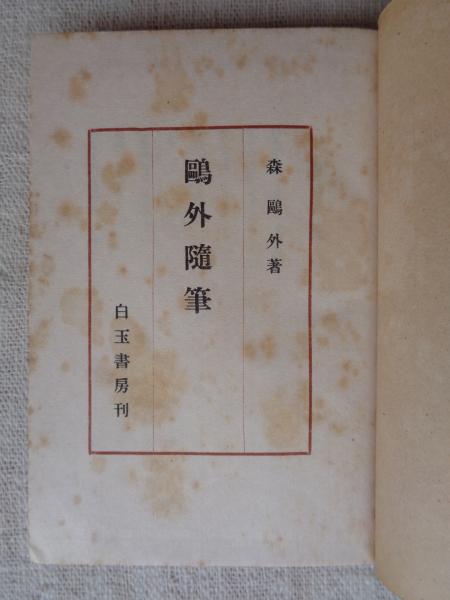 森鷗外著
鷗外隨筆
白玉書房刊